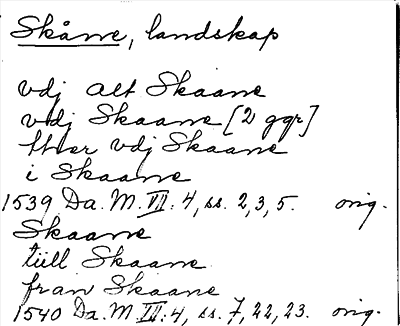 Skåne, landskap
vdj alt Skaane
vdj Skaane [2 ggr]
ffver vdj Skaane
i Skaane
1539 Da. M. VII: 4, ss. 2, 3, 5. orig.
Skaane
tiill Skaane
fran Skaane
1540 Da. M. III: 4, ss. 7, 22, 23. orig.